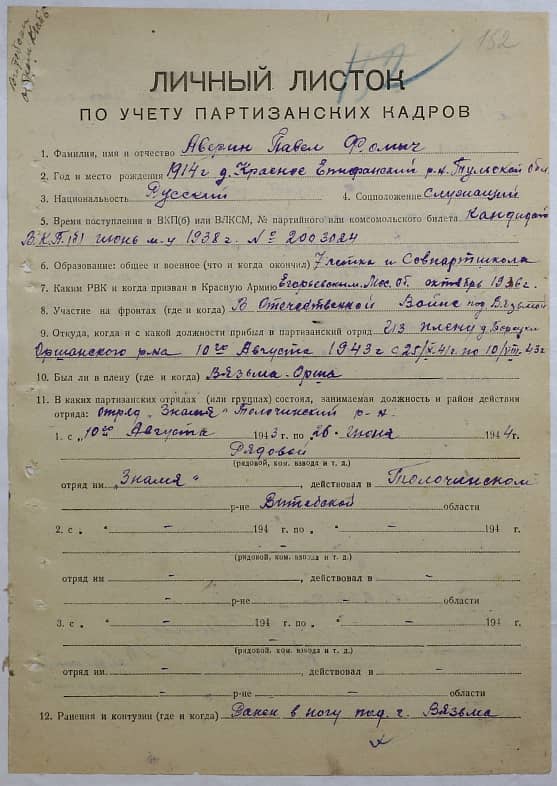 152
ЛИЧНЫЙ ЛИСТОК
ПО УЧЕТУ ПАРТИЗАНСКИХ КАДРОВ
1. Фамилия, имя и отчество Аверин Павел Фомич
2. Год и место рождения 1914 г д. Красное Епифанский р-н. Тульской обл.
3. Национальность Русский 4. Соцположение служащий
5. Время поступления в ВКП(б) или ВЛКСМ, № партийного или комсомольского билета Кандидат
В.К.П.(б) июнь м-ц 1938 г. № 2003024
6. Образование: общее и военное (что и когда окончил) 7 летка и Совпартшкола
7. Каким РВК и когда призван в Красную Армию Егорьевским. Мос. об. октябрь 1936 г.
8. Участие на фронтах (где и когда) В Отечественной Войне под Вязьмой
9. Откуда, когда и с какой должности прибыл в партизанский отряд из плену д.
Оршанского р-на 10го Августа 1943 г с 25/X-41г. по 10/VIII-43 г
10. Был ли в плену (где и когда) Вязьма-Орша
11. В каких партизанских отрядах (или группах) состоял, занимаемая должность и район действия
отряда: отряд „Знамя" Толочинский р-н.
1. с „10го Августа 1943 г. по 26 июня 1944 г.
Рядовой
(рядовой, ком. взвода и т. д.)
отряд им „Знамя", действовал в Толочинском
р-не Витебской области
2. с „ " — 194 г. по „ " — 194 г.
(рядовой, ком. взвода и т. д.)
отряд им —, действовал в —
— р-не — области
3. с „ " — 194 г. по „ " — 194 г.
(рядовой, ком. взвода и т. д.)
отряд им —, действовал в —
— р-не — области
12. Ранения и контузии (где и когда) Ранен в ногу под г. Вязьма